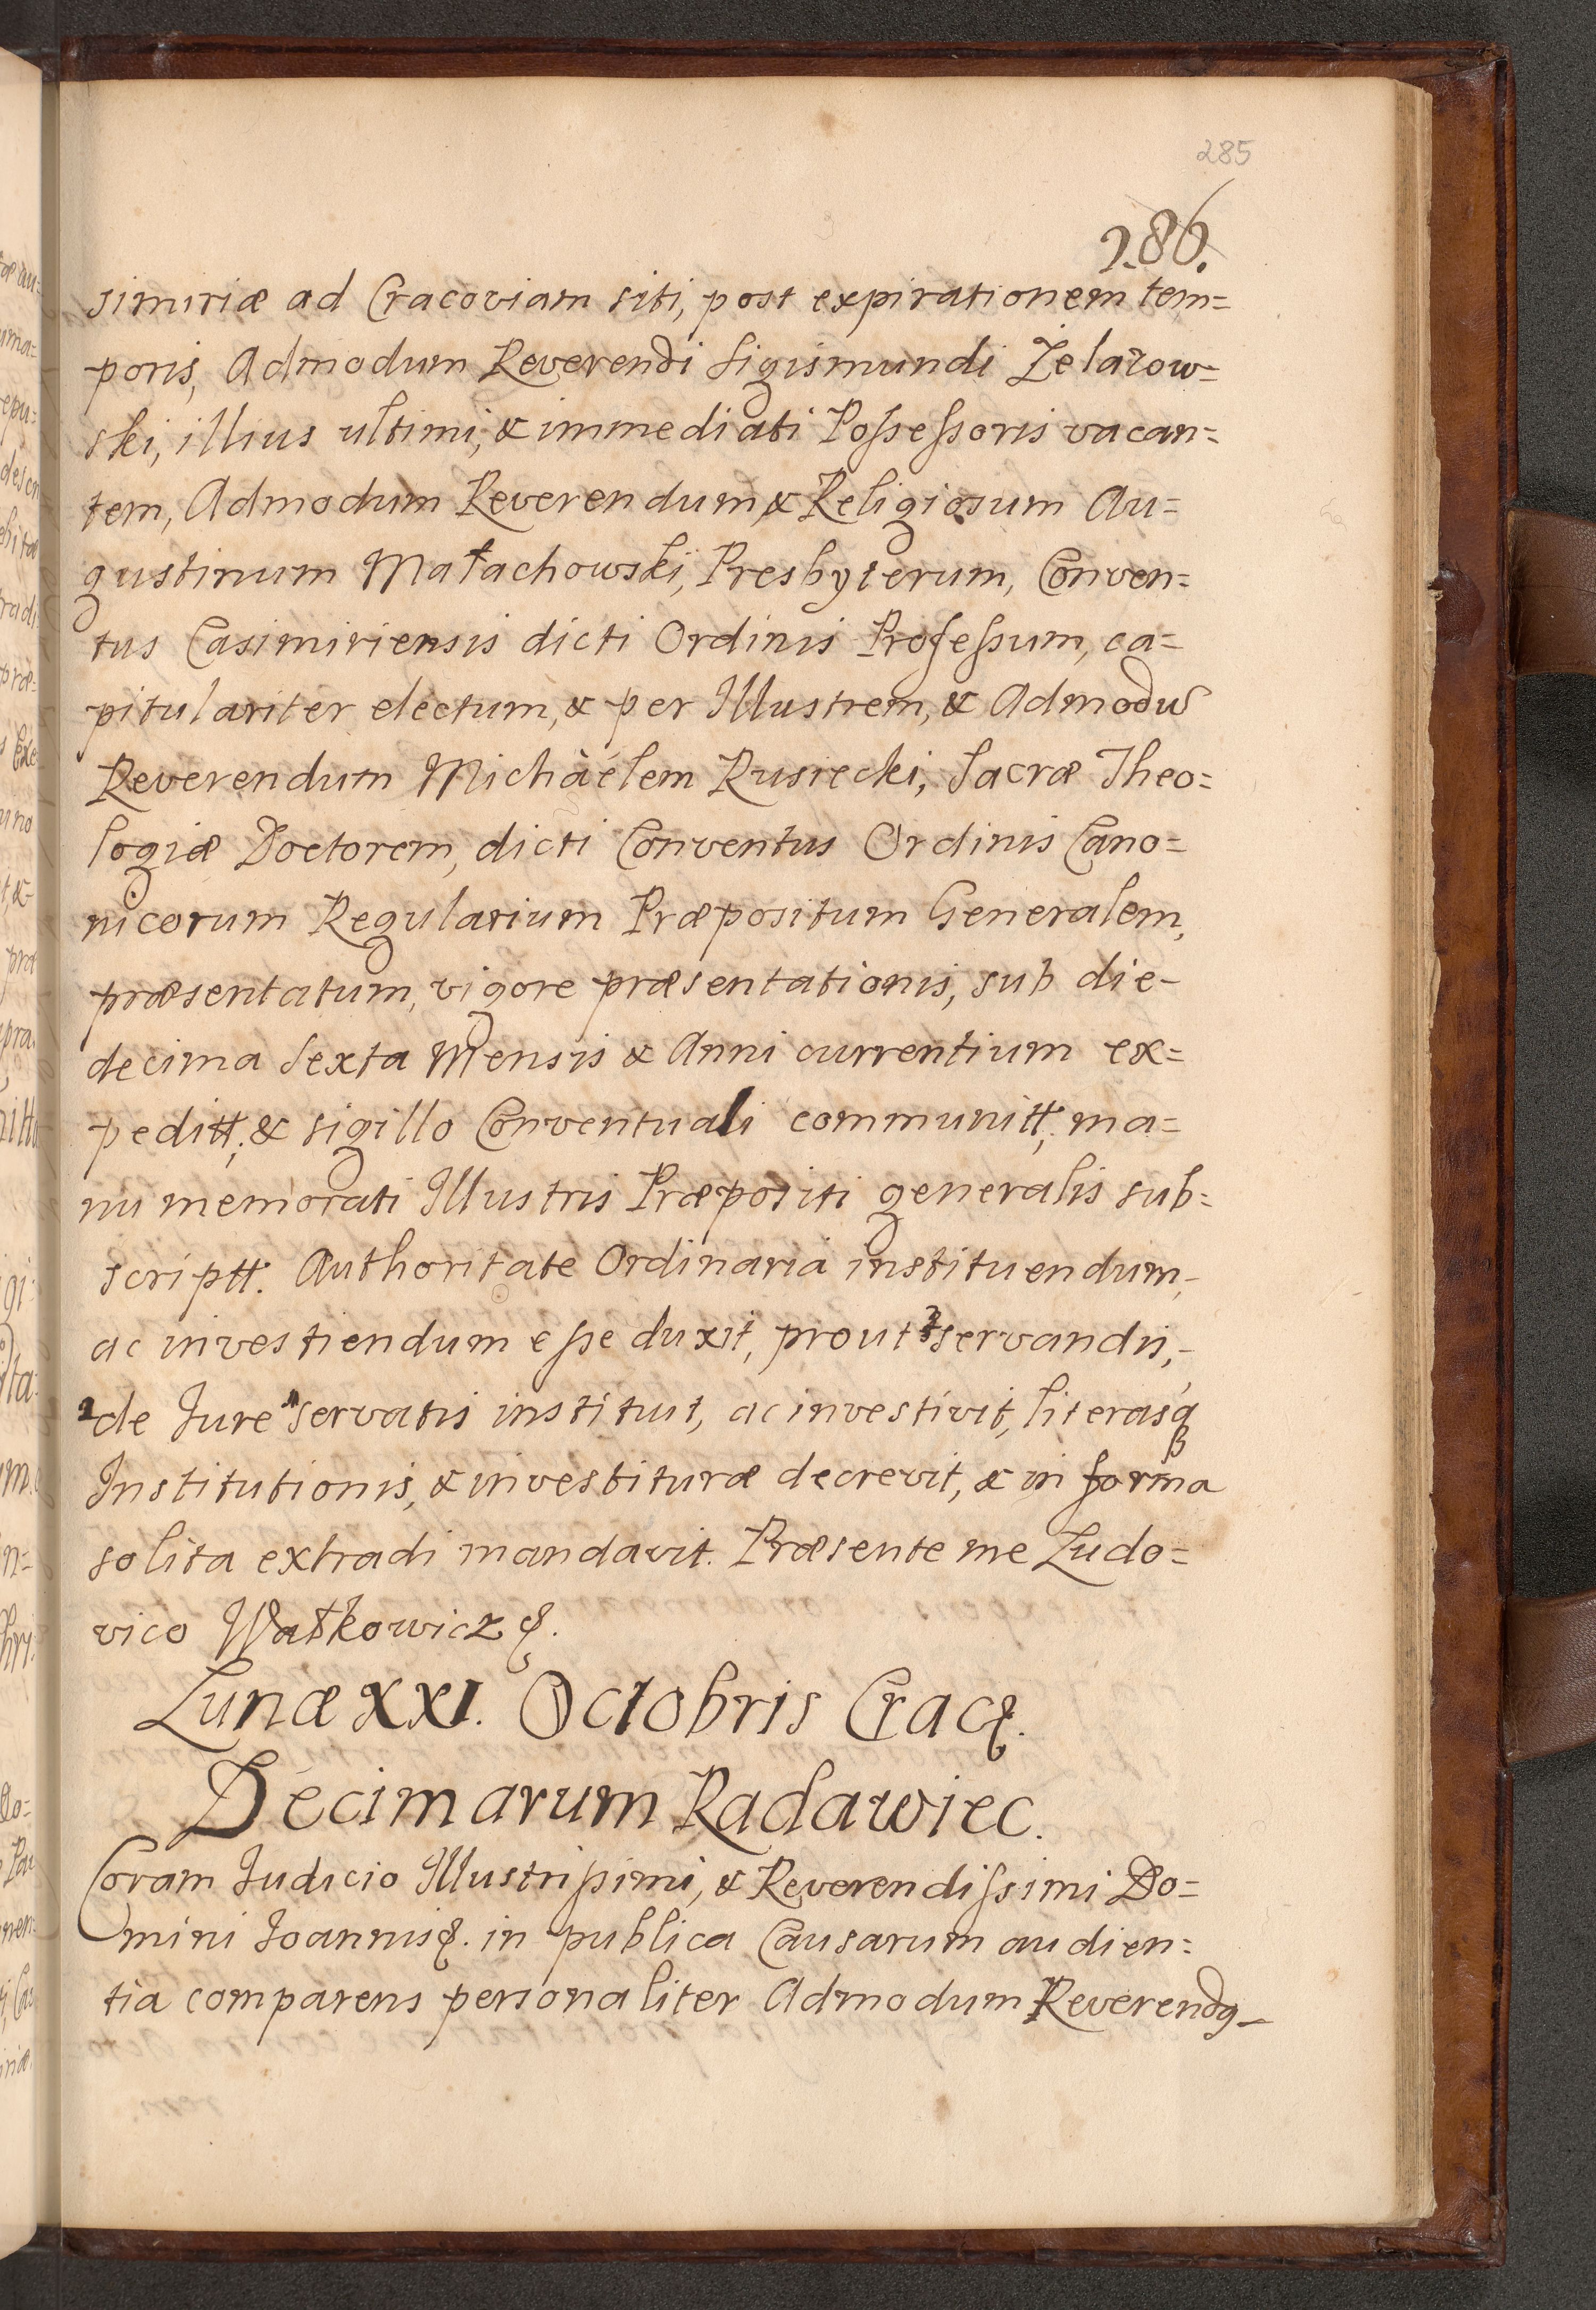 285
286.
simiriæ ad Cracoviam siti, post expirationem tem=
poris, Admodum Reverendi Sigismundi Żelazow=
ski, illius ultimi, & immediati Possessoris vacan=
tem, Admodum Reverendum, & Religiosum Au=
gustinum Małachowski, Presbyterum, Conven=
tus Casimiriensis dicti Ordinis Professum, ca=
pitulariter electum, & per Illustrem, & Admodū
Reverendum Michäelem Rusiecki, Sacræ Theo=
logiæ Doctorem, dicti Conventus Ordinis Cano=
nicorum Regularium Præpositum Generalem,
præsentatum, vigore præsentationis, sub die-
decima Sexta Mensis & Anni currentium ex=
peditt, & sigillo Conventuali communitt, ma=
nu memorati Illustris Præpositi generalis sub=
scriptt. Authoritate Ordinaria instituendum,-
ac investiendum esse duxit, prout 3servandis,-
2de Jure 1servatis instituit, ac investivit, literasq3
Institutionis, & investituræ decrevit, & in forma
solita extradi mandavit. Præsente me Ludo=
vico Wałkowicz &.
Lunæ XXI. Octobris Crac&.
Decimarum Radawiec.
Coram Judicio Illustrissimi, & Reverendissimi Do=
mini Joannis&. in publica Causarum audien=
tia comparens personaliter Admodum Reverendq-